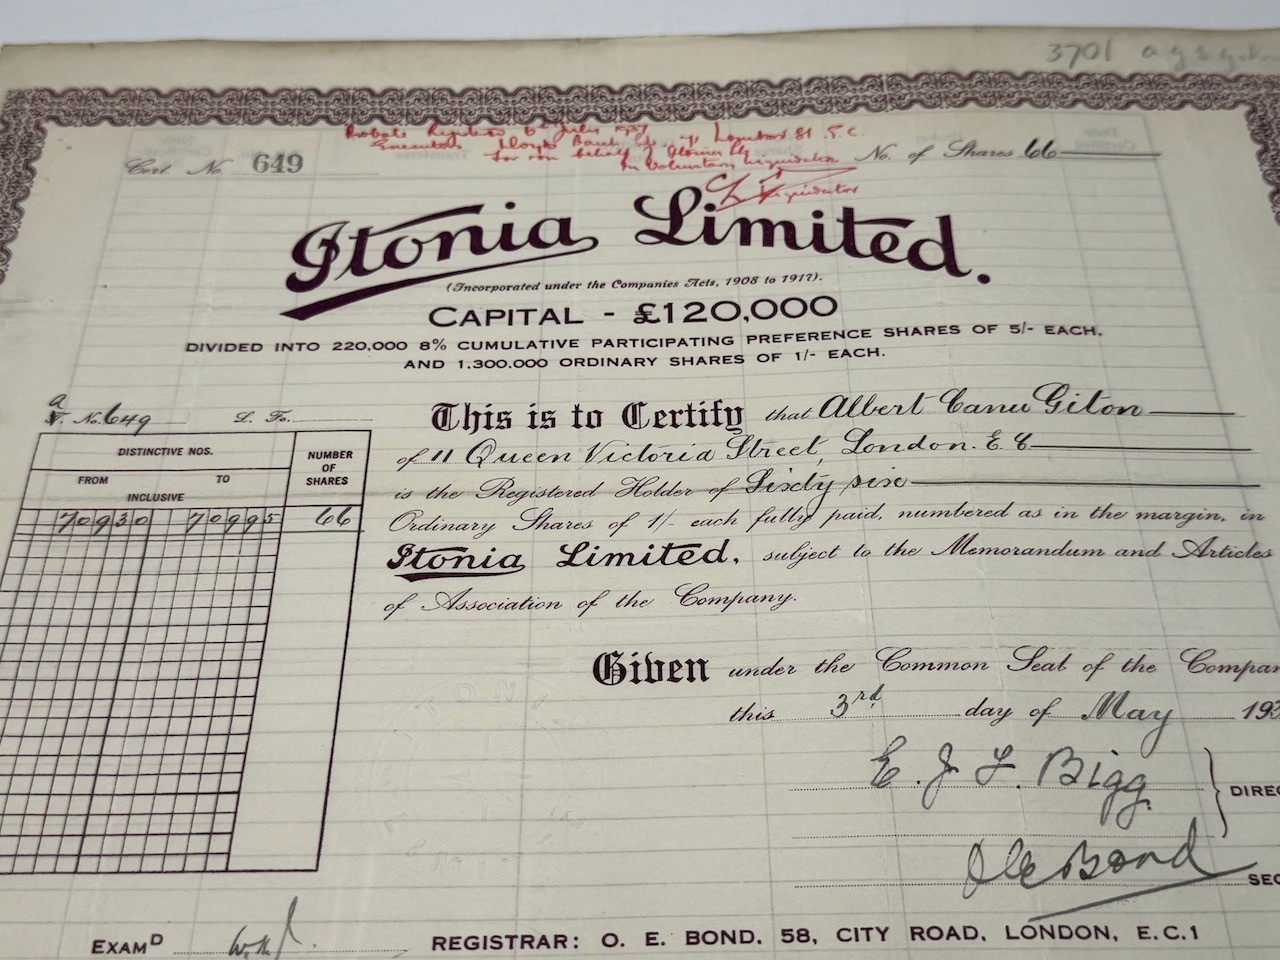 3701
Probate Registered 6th July
Executors Lloyds Bank Lombard St E.C.
for + on behalf of Itonia Ltd
In Voluntary Liquidation
Liquidator
Cert. No. 649
No. of Shares 66
Itonia Limited.
(Incorporated under the Companies Acts, 1908 to 1917).
CAPITAL - £120,000
DIVIDED INTO 220,000 8% CUMULATIVE PARTICIPATING PREFERENCE SHARES OF 5/- EACH.
AND 1.300.000 ORDINARY SHARES OF 1/- EACH.
a
T. No. 649 L. Fo.
This is to Certify that Albert Giton
of 11 Queen Victoria Street, London. E.C
is the Registered Holder of Sixty six
Ordinary Shares of 1/- each fully paid, numbered as in the margin, in
Itonia Limited, subject to the Memorandum and Articles
of Association of the Company.
DISTINCTIVE NOS.
NUMBER OF SHARES
FROM TO
INCLUSIVE
70930 70995 66
Given under the Common Seal of the Compan
this 3rd. day of May 193
E. J. L. Bigg
DIREC
O E Bond
SEC
EXAMD
REGISTRAR: O. E. BOND. 58, CITY ROAD, LONDON, E.C.1